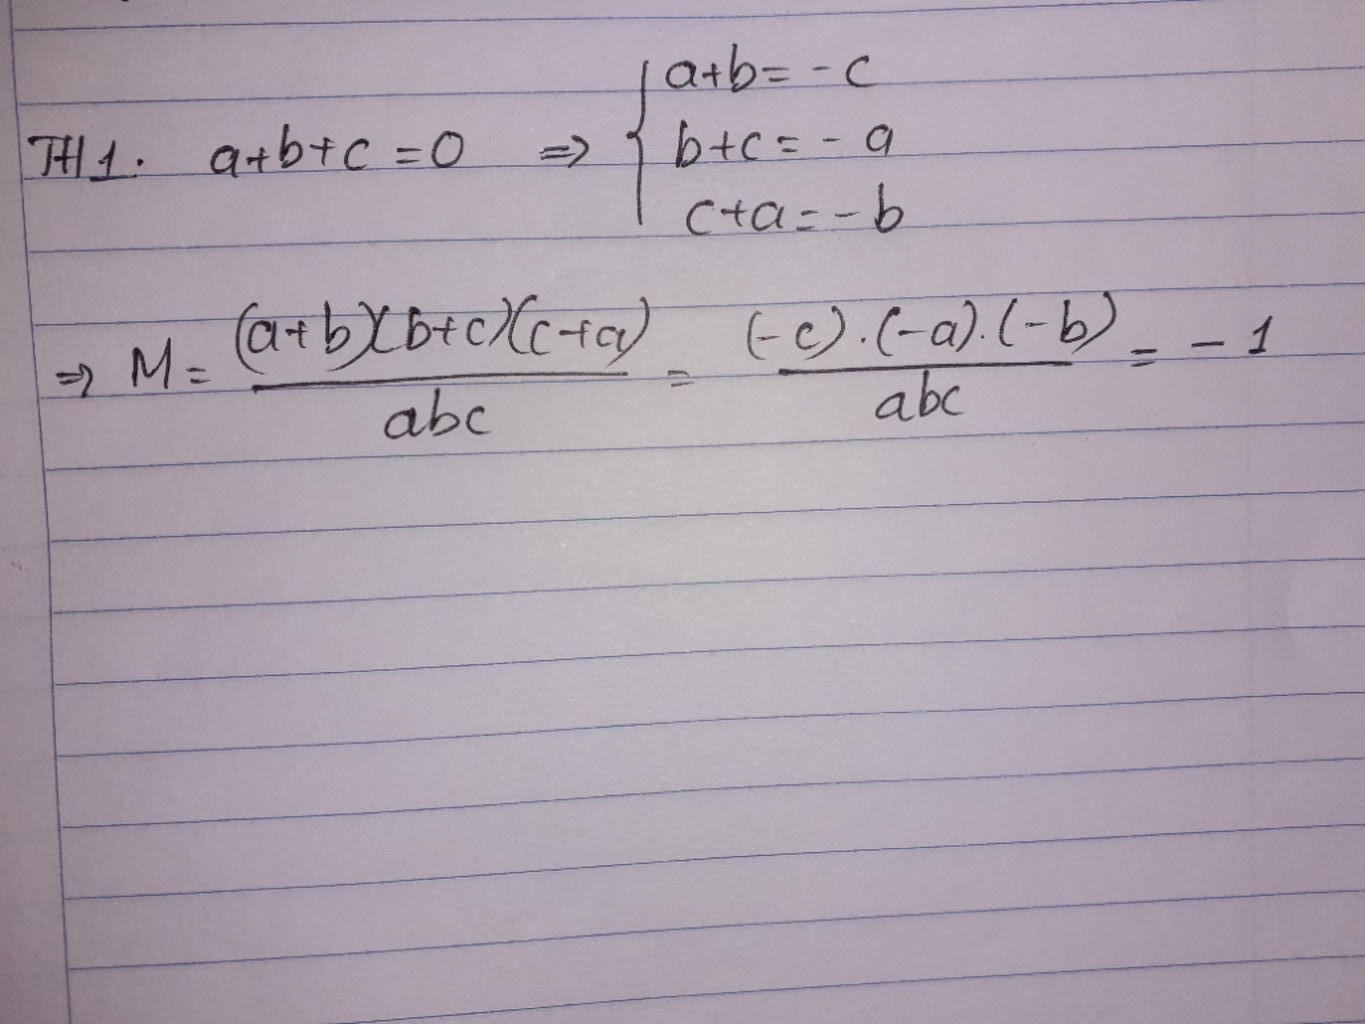 TH1. a+b+c=0 ⇒ { a+b=-c
b+c=-a
c+a=-b
⇒ M = (a+b)(b+c)(c+a) / abc = (-c).(-a).(-b) / abc = -1